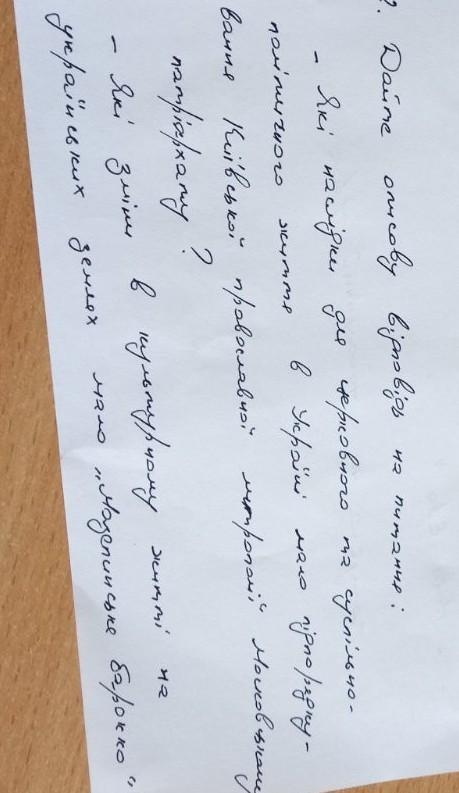 ?. Дайте описову відповідь на питання:
- Які наслідки для церковного та суспільно-
політичного життя в Україні мало підпорядку-
вання Київської православної митрополії Московському
патріархату?
- Які зміни в культурному житті на
українських землях мало „Мазепинське барокко"